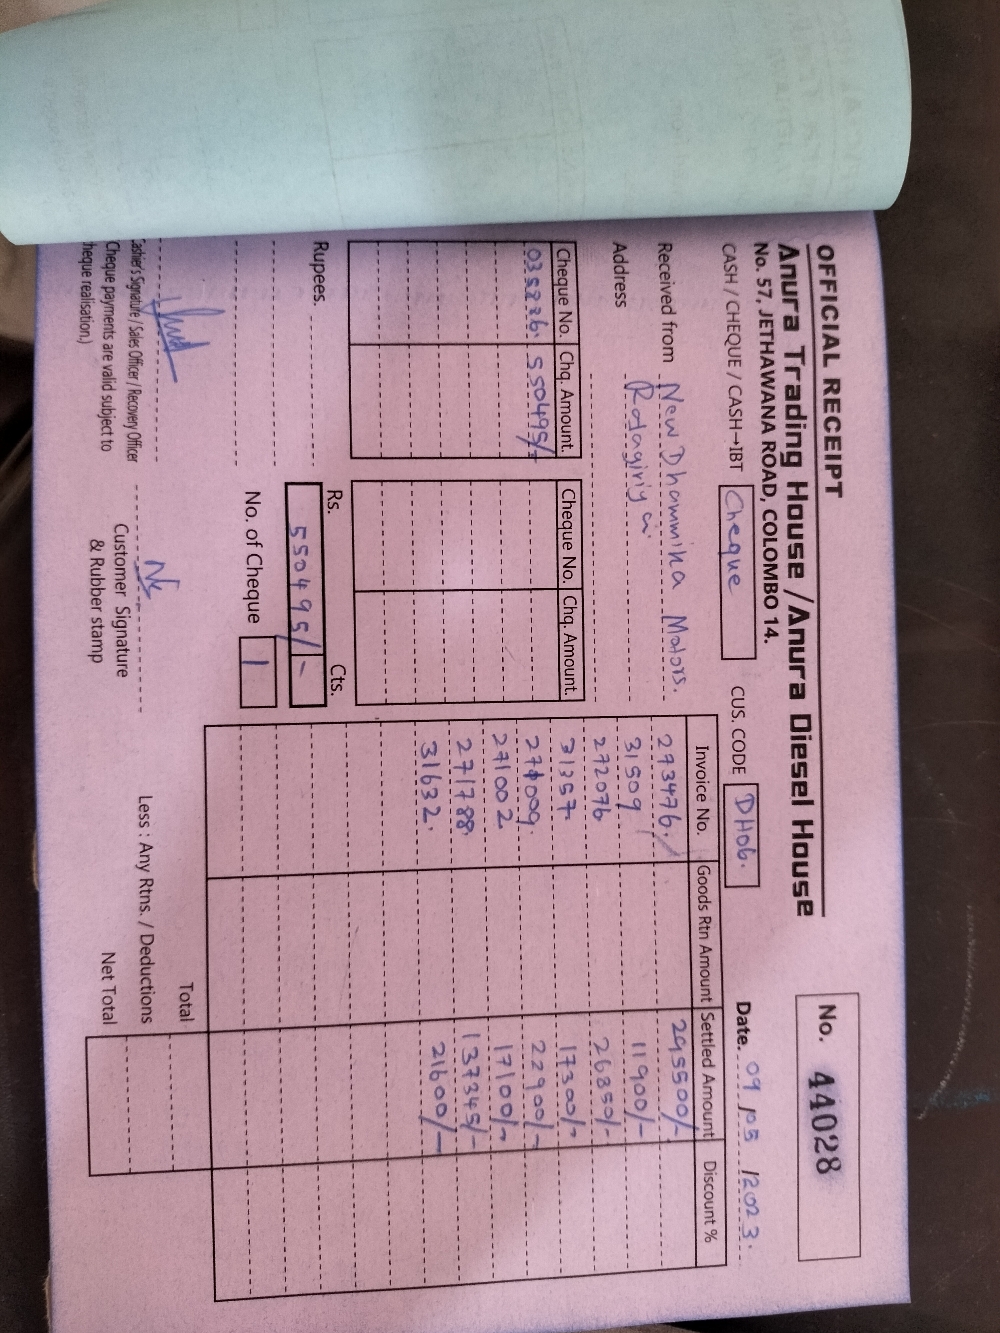 OFFICIAL RECEIPT
No. 44028
Anura Trading House / Anura Diesel House
No. 57, JETHAWANA ROAD, COLOMBO 14.
Date. 09 / 05 / 2023.
CASH / CHEQUE / CASH→IBT Cheque
CUS. CODE DH06.
Received from New Dhammika Motors.
Address Ratagiriya
Cheque No. Chq. Amount.
035226. 550495/-
Cheque No. Chq. Amount.
Invoice No. Goods Rtn Amount Settled Amount Discount %
273476. 295500/-
31509 11900/-
272076 26850/-
31357 17300/-
271009 22900/-
271002 17100/-
271788. 137345/-
31632. 21600/-
Rupees.
Rs. Cts.
550495/-
No. of Cheque 1
Total
Less : Any Rtns. / Deductions
Net Total
Cashier's Signature / Sales Officer / Recovery Officer
Cheque payments are valid subject to
cheque realisation.)
Customer Signature
& Rubber stamp